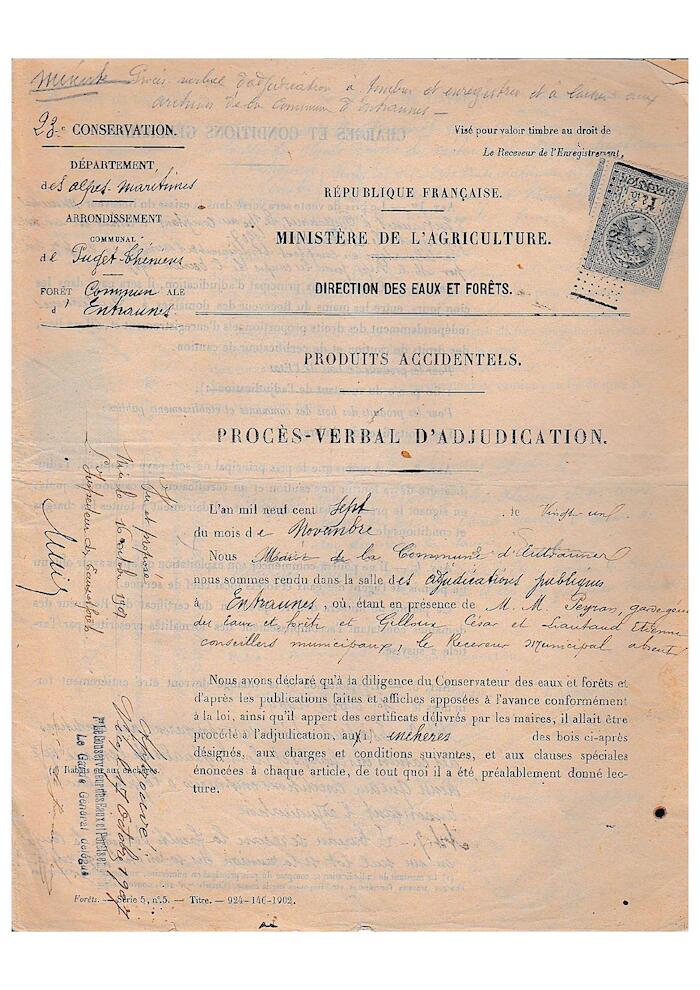 Minute Procès verbal d'adjudication à timbrer et enregistrer et à laisser aux
archives de la Commune d'Entraunes —
23e CONSERVATION.
DÉPARTEMENT
des Alpes-Maritimes
ARRONDISSEMENT
COMMUNAL
de Puget-Théniers
FORÊT Communale
d'Entraunes
Visé pour valoir timbre au droit de
Le Receveur de l'Enregistrement,
RÉPUBLIQUE FRANÇAISE.
MINISTÈRE DE L'AGRICULTURE.
DIRECTION DES EAUX ET FORÊTS.
PRODUITS ACCIDENTELS.
PROCÈS-VERBAL D'ADJUDICATION.
L'an mil neuf cent sept, le vingt un
du mois de Novembre
Nous Maire de la Commune d'Entraunes
nous sommes rendu dans la salle des adjudications publiques
à Entraunes, où, étant en présence de M. M. Peyran, garde gene
des eaux et forêts et Gilloux César et Liautaud Etienne
conseillers municipaux, le Receveur Municipal absent
Nous avons déclaré qu'à la diligence du Conservateur des eaux et forêts et
d'après les publications faites et affiches apposées à l'avance conformément
à la loi, ainsi qu'il appert des certificats délivrés par les maires, il allait être
procédé à l'adjudication, aux (1) enchères des bois ci-après
désignés, aux charges et conditions suivantes, et aux clauses spéciales
énoncées à chaque article, de tout quoi il a été préalablement donné lec-
ture.
Vu et proposé
Nice le 16 1907
L'Inspecteur des Eaux et forêts
Approuvé
Nice, le 17 Octobre 1907
Pr Le Conservateur des Eaux et Forêts
Le Garde Général délégué
(1) Rabais ou aux enchères.
Forêts. — Série 5, n°. 5. — Titre. — 924-146-1902.